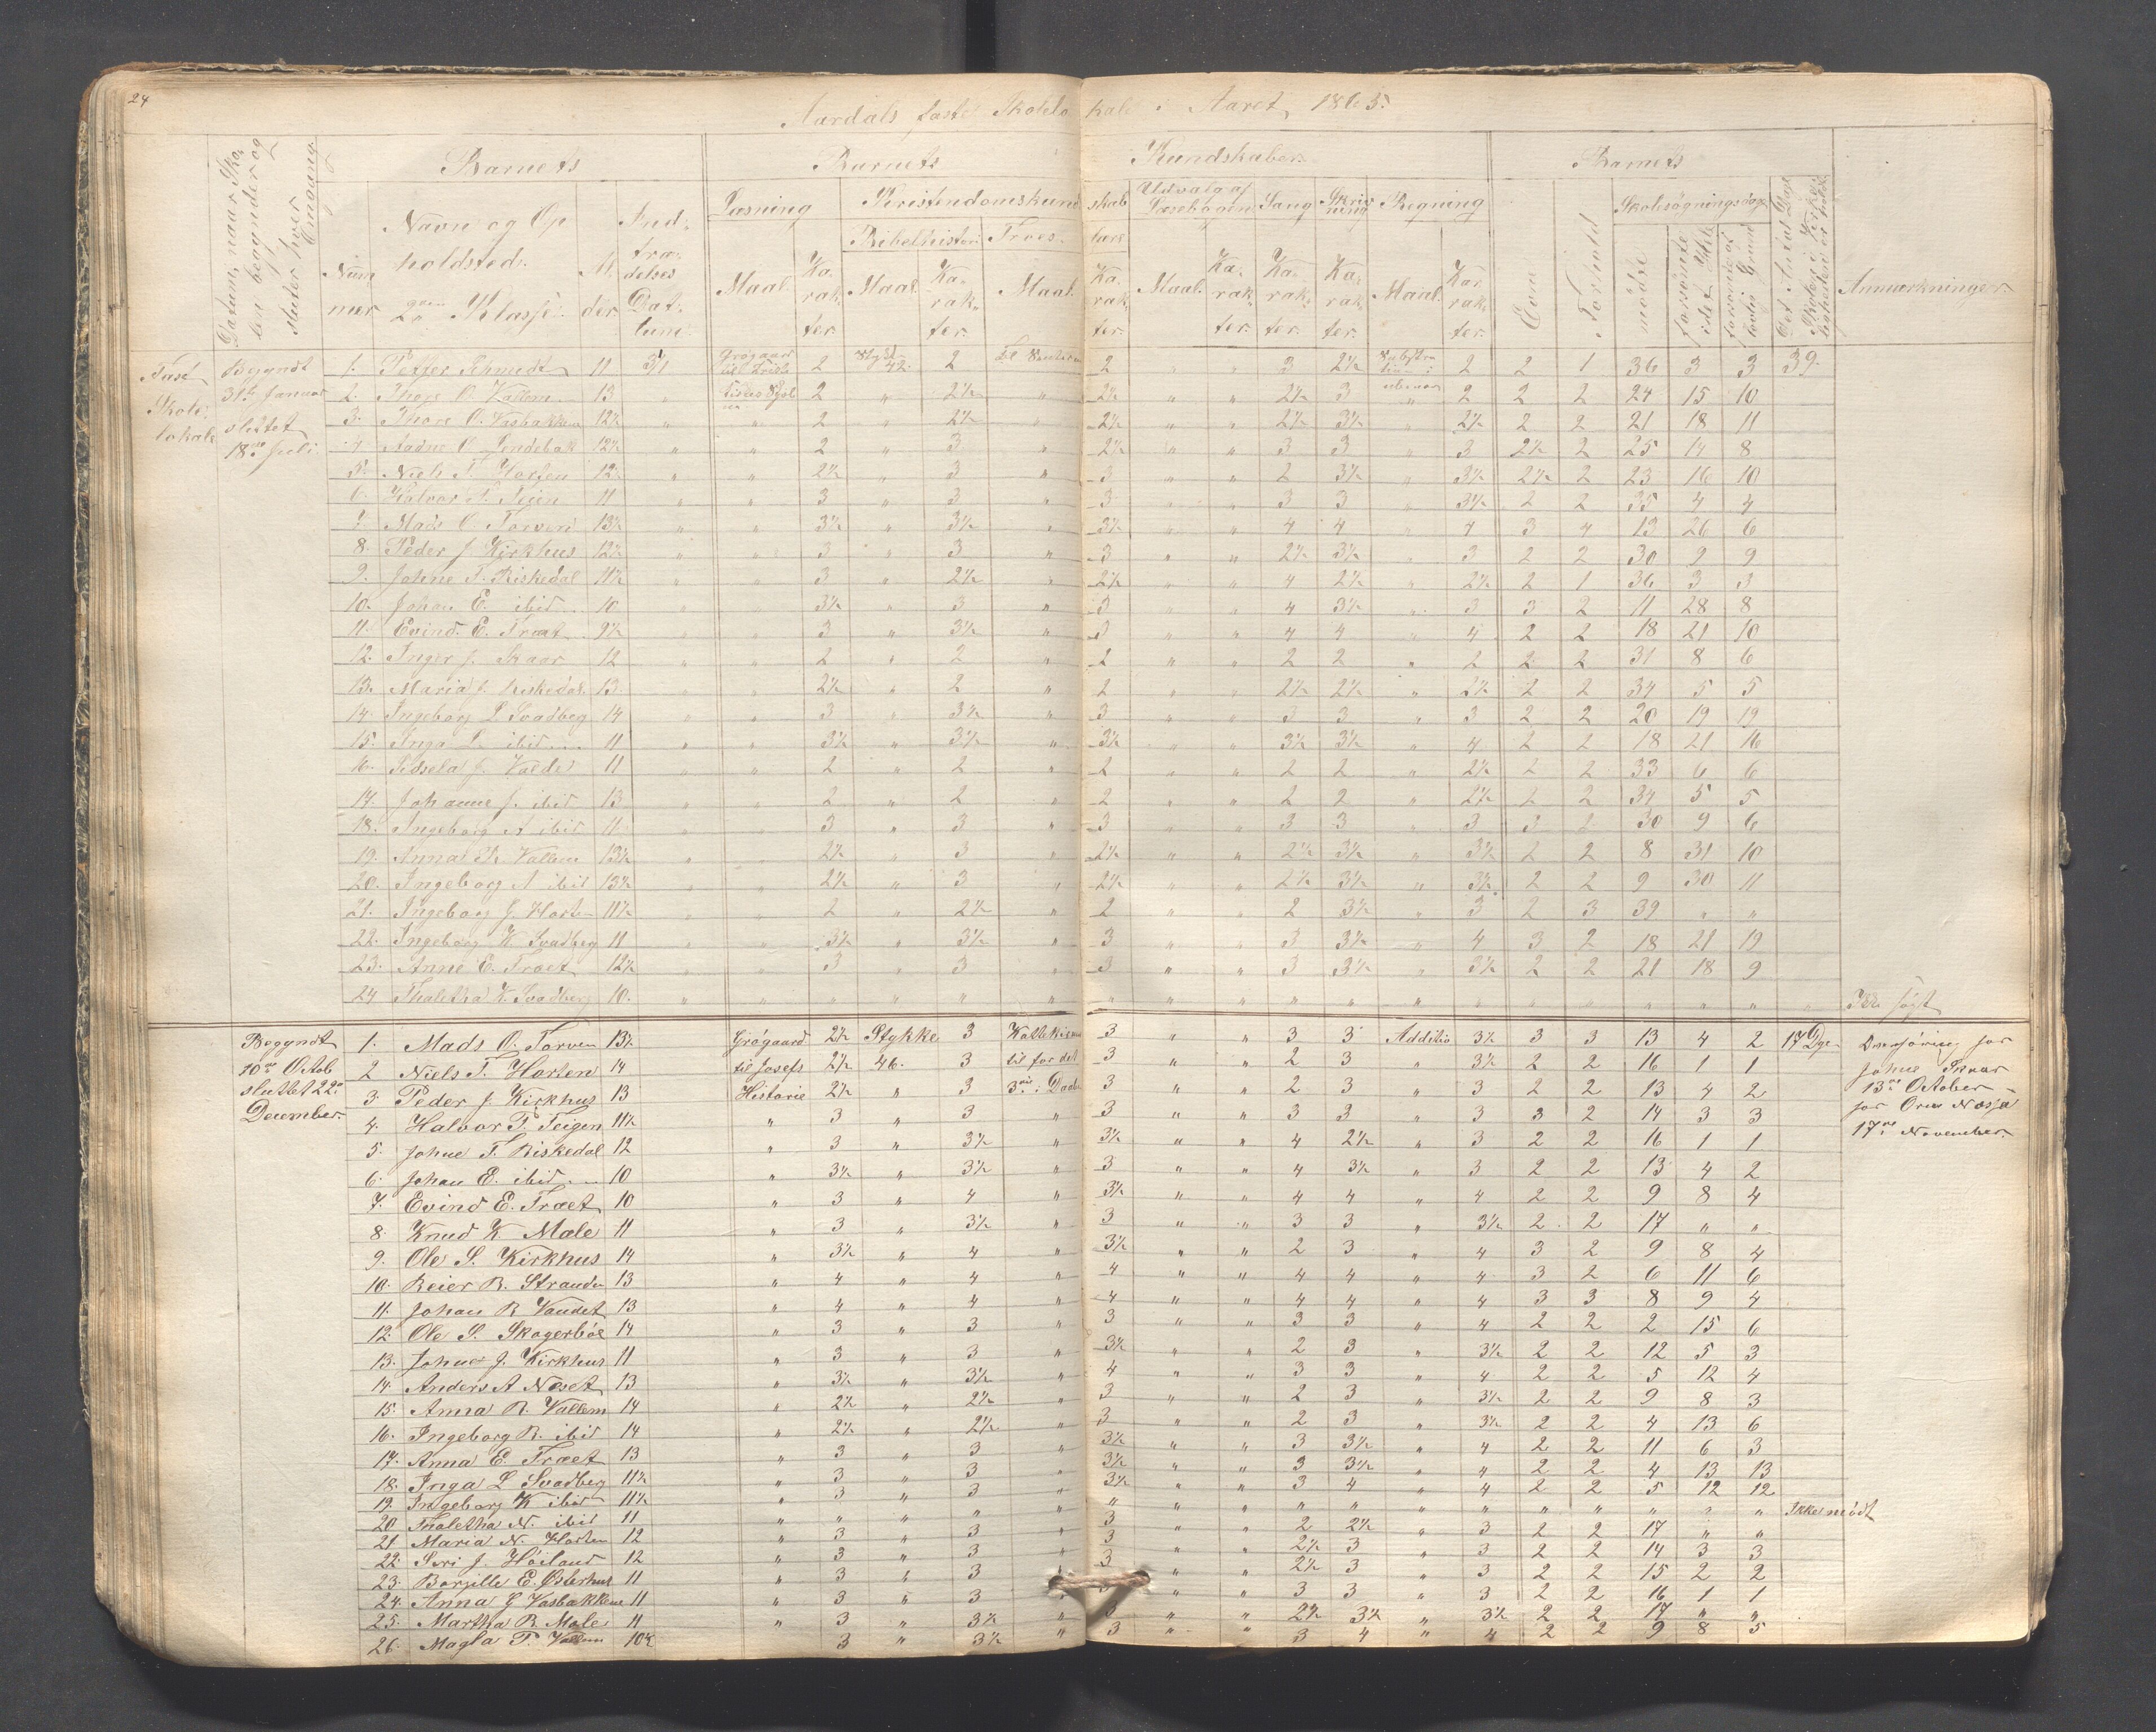 24
Aardals faste Skolelokale i Aaret 1865.
Datum, naar Skolen begynder og slutter hver Omgang
Barnets
Barnets
Kundskaber
Barnets
Nummer
Navn og Opholdsted.
2den Klasse.
Alder
Indtrædelses Datum
Læsning
Maal.
Karakter.
Kristendomskundskab
Bibelhistorie
Maal.
Karakter.
Troeslære
Maal.
Karakter.
Udvalg af Læsebogen
Maal.
Karakter.
Sang
Karakter.
Skrivning
Karakter.
Regning
Maal.
Karakter.
Evne
Forhold
Skolesøgningsdage
mødte
forsømte i det Hele
forsømte af lovlig Grund
Det Antal Dage Skolen i Virkeligheden er holdt
Anmærkninger.
Fast Skolelokale
Begyndt 31te Januar sluttet 18de Juli.
1. Petter Schmidt 11 3/1 Grøgaard til Kristi 2 Stykke 42. 2 2 " " 3 2½ 2 2 1 36 3 3 39.
2. Thore O. Vallem 13 " 2 " 2½ " 2½ " " 2½ 3 " 2 2 2 24 15 10
3. Thore O. Vasbakken 12½ " " 2 " 2½ " 2½ " " 2½ 3½ 2½ 2 2 21 18 11
4. Aadne O. Lindebak 12½ " " 2 " 3 " 2½ " " 3 3 " 3 2½ 2 25 14 8
5. Niels T. Horten 12½ " " 2½ " 3 " 3 " " 2 3½ " 3½ 2½ 2 23 16 10
6. Halvor P. Teigen 11 " " 3 " 3 " 3 " " 3 3 " 3½ 2 2 35 4 4
7. Mads O. Torven 13½ " " 3½ " 3½ " 3½ " " 4 4 " 4 3 4 13 26 6
8. Peder J. Kirkhus 12½ " " 3 " 3 " 3 " " 2½ 3½ " 3 2 2 30 9 9
9. Johne T. Riskedal 11½ " " 3 " 2½ " 2½ " " 4 2½ " 2½ 2 1 36 3 3
10. Johan E. ibid 10 " " 3½ " 3 " 3 " " 4 3½ " 3 3 2 11 28 8
11. Evind E. Træet 9½ " " 3 " 3½ " 3 " " 4 4 " 4 2 2 18 21 10
12. Inger J. Skaar 12 " " 2 " 2 " 2 " " 2 2 " 2 2 2 31 8 6
13. Maria J. Riskedal 13 " " 2½ " 2 " 2 " " 2½ 2½ " 2½ 2 2 34 5 5
14. Ingeborg L Svadberg 14 " " 3 " 3½ " 3 " " 3 3 " 3 2 2 20 19 19
15. Inga L. ibid 11 " " 3½ " 3½ " 3½ " " 3½ 3½ " 4 2 2 18 21 16
16. Sidsela J. Valde 11 " " 2 " 2 " 2 " " 2 2 " 2½ 2 2 33 6 6
17. Johanne J. ibid 13 " " 2 " 2 " 2 " " 2 2 " 2½ 2 2 34 5 5
18. Ingeborg A ibid 11 " " 3 " 3 " 3 " " 3 3 " 3 3 2 30 9 6
19. Anna R. Vallem 13½ " " 2½ " 3 " 2½ " " 2½ 3½ " 3½ 2 2 8 31 10
20. Ingeborg A ibid 13½ " " 2½ " 3 " 2½ " " 2½ 3½ " 3½ 2 2 9 30 11
21. Ingeborg J. Horten 11½ " " 2 " 2½ " 2 " " 2 3½ " 3 2 3 39 " "
22. Ingeborg K. Svadberg 11 " " 3½ " 3½ " 3 " " 3 3½ " 4 3 2 18 21 19
23. Anne E. Træet 12½ " " 3 " 3 " 3 " " 3 3½ " 3½ 2 2 21 18 9
24 Thaletha K. Svadberg 10. " " " " " " " " " " " " " " " " " " Ikke søgt
Begyndt 10de Octob sluttet 22de December.
1. Mads O. Torven 13½ Grøgaard 2½ Stykke 3 Kattekismus 3 " " 3 3 Additio 3½ 3 3 13 4 2 17 Dge
2 Niels T. Horten 14 til Josefs 2½ 46. 3 til for det 3 " " 2 3 " 3½ 2 2 16 1 1
3. Peder J. Kirkhus 13 Historie 2½ " 3 3die i Daab 3 " " 2 3 " 3 2 2 13 4 2
4. Halvor P. Teigen 11½ " 3 " 3 " 3 " " 3 3 " 3 3 2 14 3 3
5. Johne T. Riskedal 12 " 3 " 3½ " 3½ " " 4 2½ " 3 2 2 16 1 1
6. Johan E. ibid 10 " 3½ " 3½ " 3 " " 4 3½ " 3 2 2 13 4 2
7. Evind E. Træet 10 " 3 " 4 " 3½ " " 4 4 " 4 2 2 9 8 4
8. Knud K. Male 11 " 3 " 3½ " 3 " " 3 3 " 3½ 2 2 17 " "
9. Ole S. Kirkhus 14 " 3½ " 4 " 3½ " " 2 3 " 4 3 2 9 8 4
10. Reier R. Stranden 13 " 4 " 4 " 4 " " 4 4 " 4 3 2 6 11 6
11. Johan R Vandet 13 " 4 " 4 " 4 " " 4 4 " 4 3 3 8 9 4
12. Ole S. Skogerbøe 14 " 3 " 3 " 3 " " 3 3 " 4 2 2 2 15 6
13. Johne J. Kirkhus 11 " 3 " 3 " 3½ " " 2 3 " 3½ 2 2 12 5 3
14. Anders A Neset 13 " 3½ " 3½ " 4 " " 3 3 " 4 2 2 5 12 4
15. Anna R. Vallem 14 " 2½ " 2½ " 3 " " 2 3 " 3½ 2 2 9 8 3
16. Ingeborg R. ibid 14 " 2½ " 2½ " 3 " " 2 3 " 3½ 2 2 4 13 6
17. Anna E. Træet 13 " 3 " 3 " 3½ " " 3 3½ " 4 2 2 11 6 3
18. Inga L Svadberg 11½ " 3 " 3 " 3½ " " 3 3½ " 4 2 2 4 13 13
19. Ingeborg K ibid 11½ " 3 " 3 " 3½ " " 3 4 " 4 2 2 5 12 12
20. Thaletha N. ibid 11 " " " " " " " " " " " " " " " " " Ikke mødt
21 Maria N. Horten 12 " 3 " 3 " 3 " " 2 2½ " 3 2 2 17 " "
22. Siri J. Høiland 12 " 3 " 3 " 3 " " 2½ 3 " 3 2 2 14 3 3
23. Borgille E. Østerhus 11 " 3 " 3 " 3 " " 2½ 3 " 3 2 2 15 2 2
24. Anna G Vasbakken 11 " 3 " 3 " " " 3 3 " 3 2 2 16 1 1
25. Martha R. Male 11 " 3 " 3½ " 3 " " 2½ 3½ " 3½ 2 2 17 " "
26. Magla P. Vallem 10½ 3 " 3½ " 3 " " 3 4 " 4 2 2 9 8 5
for Johne Skaar
13de October
for Orm Nessa
17de November.